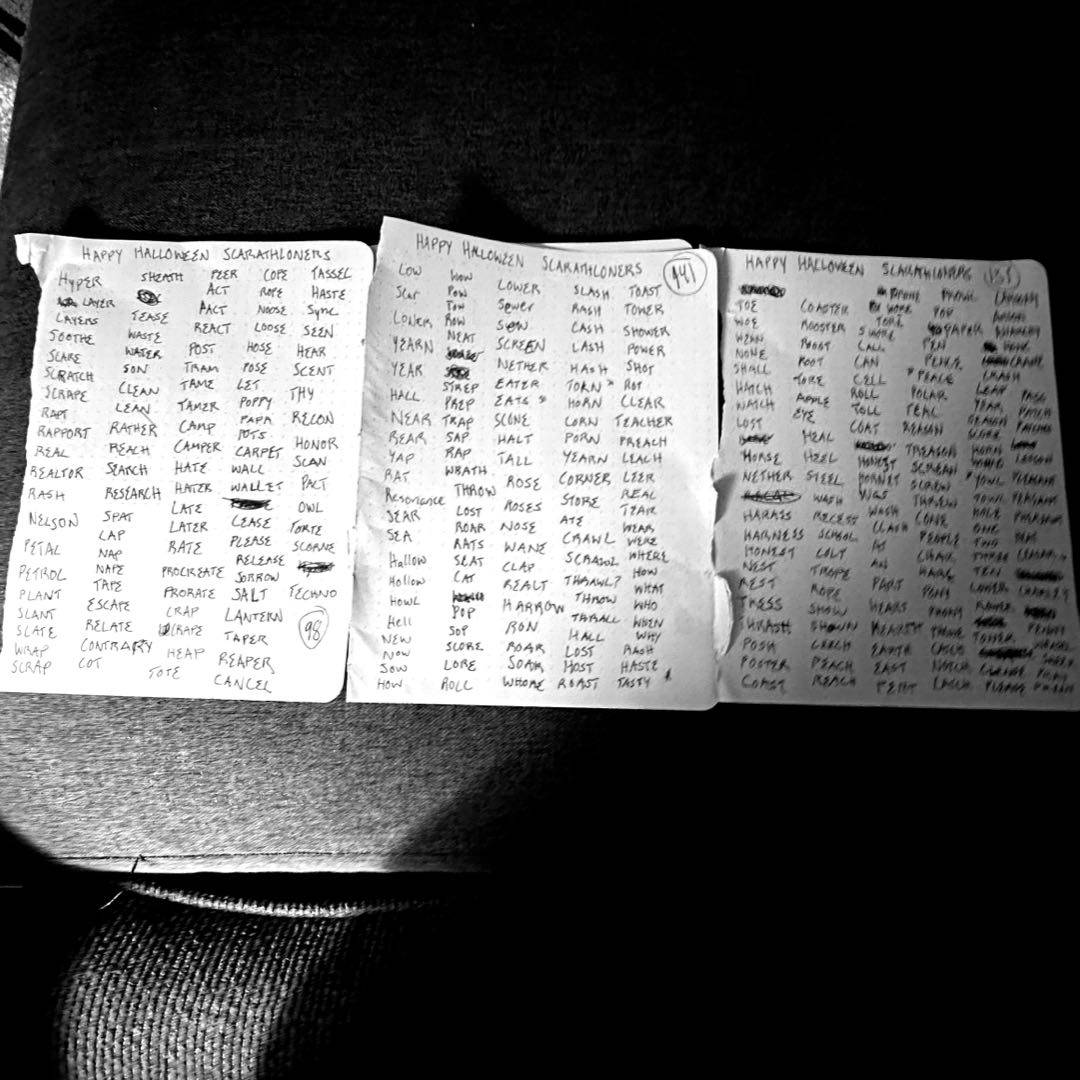 HAPPY HALLOWEEN SCARATHLONERS
HYPER
LAYER
LAYERS
SOOTHE
SCARE
SCRATCH
SCRAPE
RAPT
RAPPORT
REAL
REALTOR
RASH
NELSON
PETAL
PETROL
PLANT
SLANT
SLATE
WRAP
SCRAP
SHEATH
TEASE
WASTE
WATER
SON
CLEAN
LEAN
RATHER
REACH
SEARCH
RESEARCH
SPAT
LAP
NAP
NAPE
TAPE
ESCAPE
RELATE
CONTRARY
COT
PEER
ACT
PACT
REACT
POST
TRAM
TAME
TAMER
CAMP
CAMPER
HATE
HATER
LATE
LATER
RATE
PROCREATE
PRORATE
CRAP
CRAPE
HEAP
TOTE
COPE
ROPE
NOOSE
LOOSE
HOSE
POSE
LET
POPPY
PAPA
POTS
CARPET
WALL
WALLET
LEASE
PLEASE
RELEASE
SORROW
SALT
LANTERN
TAPER
REAPER
CANCEL
TASSEL
HASTE
SYNC
SEEN
HEAR
SCENT
THY
RECON
HONOR
SCAN
PACT
OWL
TORTE
SCORNE
TECHNO
98
HAPPY HALLOWEEN SCARATHLONERS
LOW
Scar
LONER
YEARN
YEAR
HALL
NEAR
REAR
YAP
RAT
Resonance
SEAR
SEA
Hallow
Hollow
HOWL
Hell
NEW
NOW
SOW
HOW
WOW
POW
TOW
ROW
NEAT
STREP
PREP
TRAP
SAP
RAP
WRATH
THROW
LOST
ROAR
RATS
SEAT
CAT
POP
SOP
SCORE
LORE
ROLL
LOWER
Sewer
SEW
SCREEN
NETHER
EATER
EATS
SCONE
HALT
TALL
ROSE
ROSES
NOSE
WANE
CLAP
REALT
HARROW
RON
ROAR
SOAK
WHORE
SLASH
RASH
CASH
LASH
HASH
TORN
HORN
CORN
PORN
YEARN
CORNER
STORE
ATE
CRAWL
SCRAWL
THRAWL?
THROW
THRALL
HALL
LOST
HOST
ROAST
TOAST
TOWER
SHOWER
POWER
SHOT
ROT
CLEAR
TEACHER
PREACH
LEACH
LEER
REAL
TEAR
WEAR
WERE
WHERE
HOW
WHAT
WHO
WHEN
WHY
RASH
HASTE
TASTY
HAPPY HALLOWEEN SCARATHLONERS
TOE
WOE
WEAN
NONE
SHALL
HATCH
WATCH
LOST
HORSE
NETHER
HARASS
HARNESS
HONEST
NEST
REST
TRESS
THRASH
POSH
POSTER
COAST
COASTER
ROOSTER
ROOST
ROOT
TORE
APPLE
EYE
HEAL
HEEL
STEEL
WASH
RECESS
SCHOOL
COLT
TROPE
ROPE
SHOW
SHOWN
LEECH
PEACH
REACH
CALL
CAN
CELL
ROLL
TOLL
COAT
HORNET
WAS
WASH
CLASH
AT
AN
PART
HEART
HEARTH
EARTH
EAST
PENT
POP
PAPER
PEN
PENCE
PEACE
POLAR
TEAL
REASON
TREASON
SCREAM
SCREW
THREW
CONE
PEOPLE
CHAIR
PONY
PHONY
NOTCH
LATCH
CRASH
LEAP
YEAR
HORN
TOWL
HOLE
ONE
TWO
THREE
TEN
TOWER
PLEASE